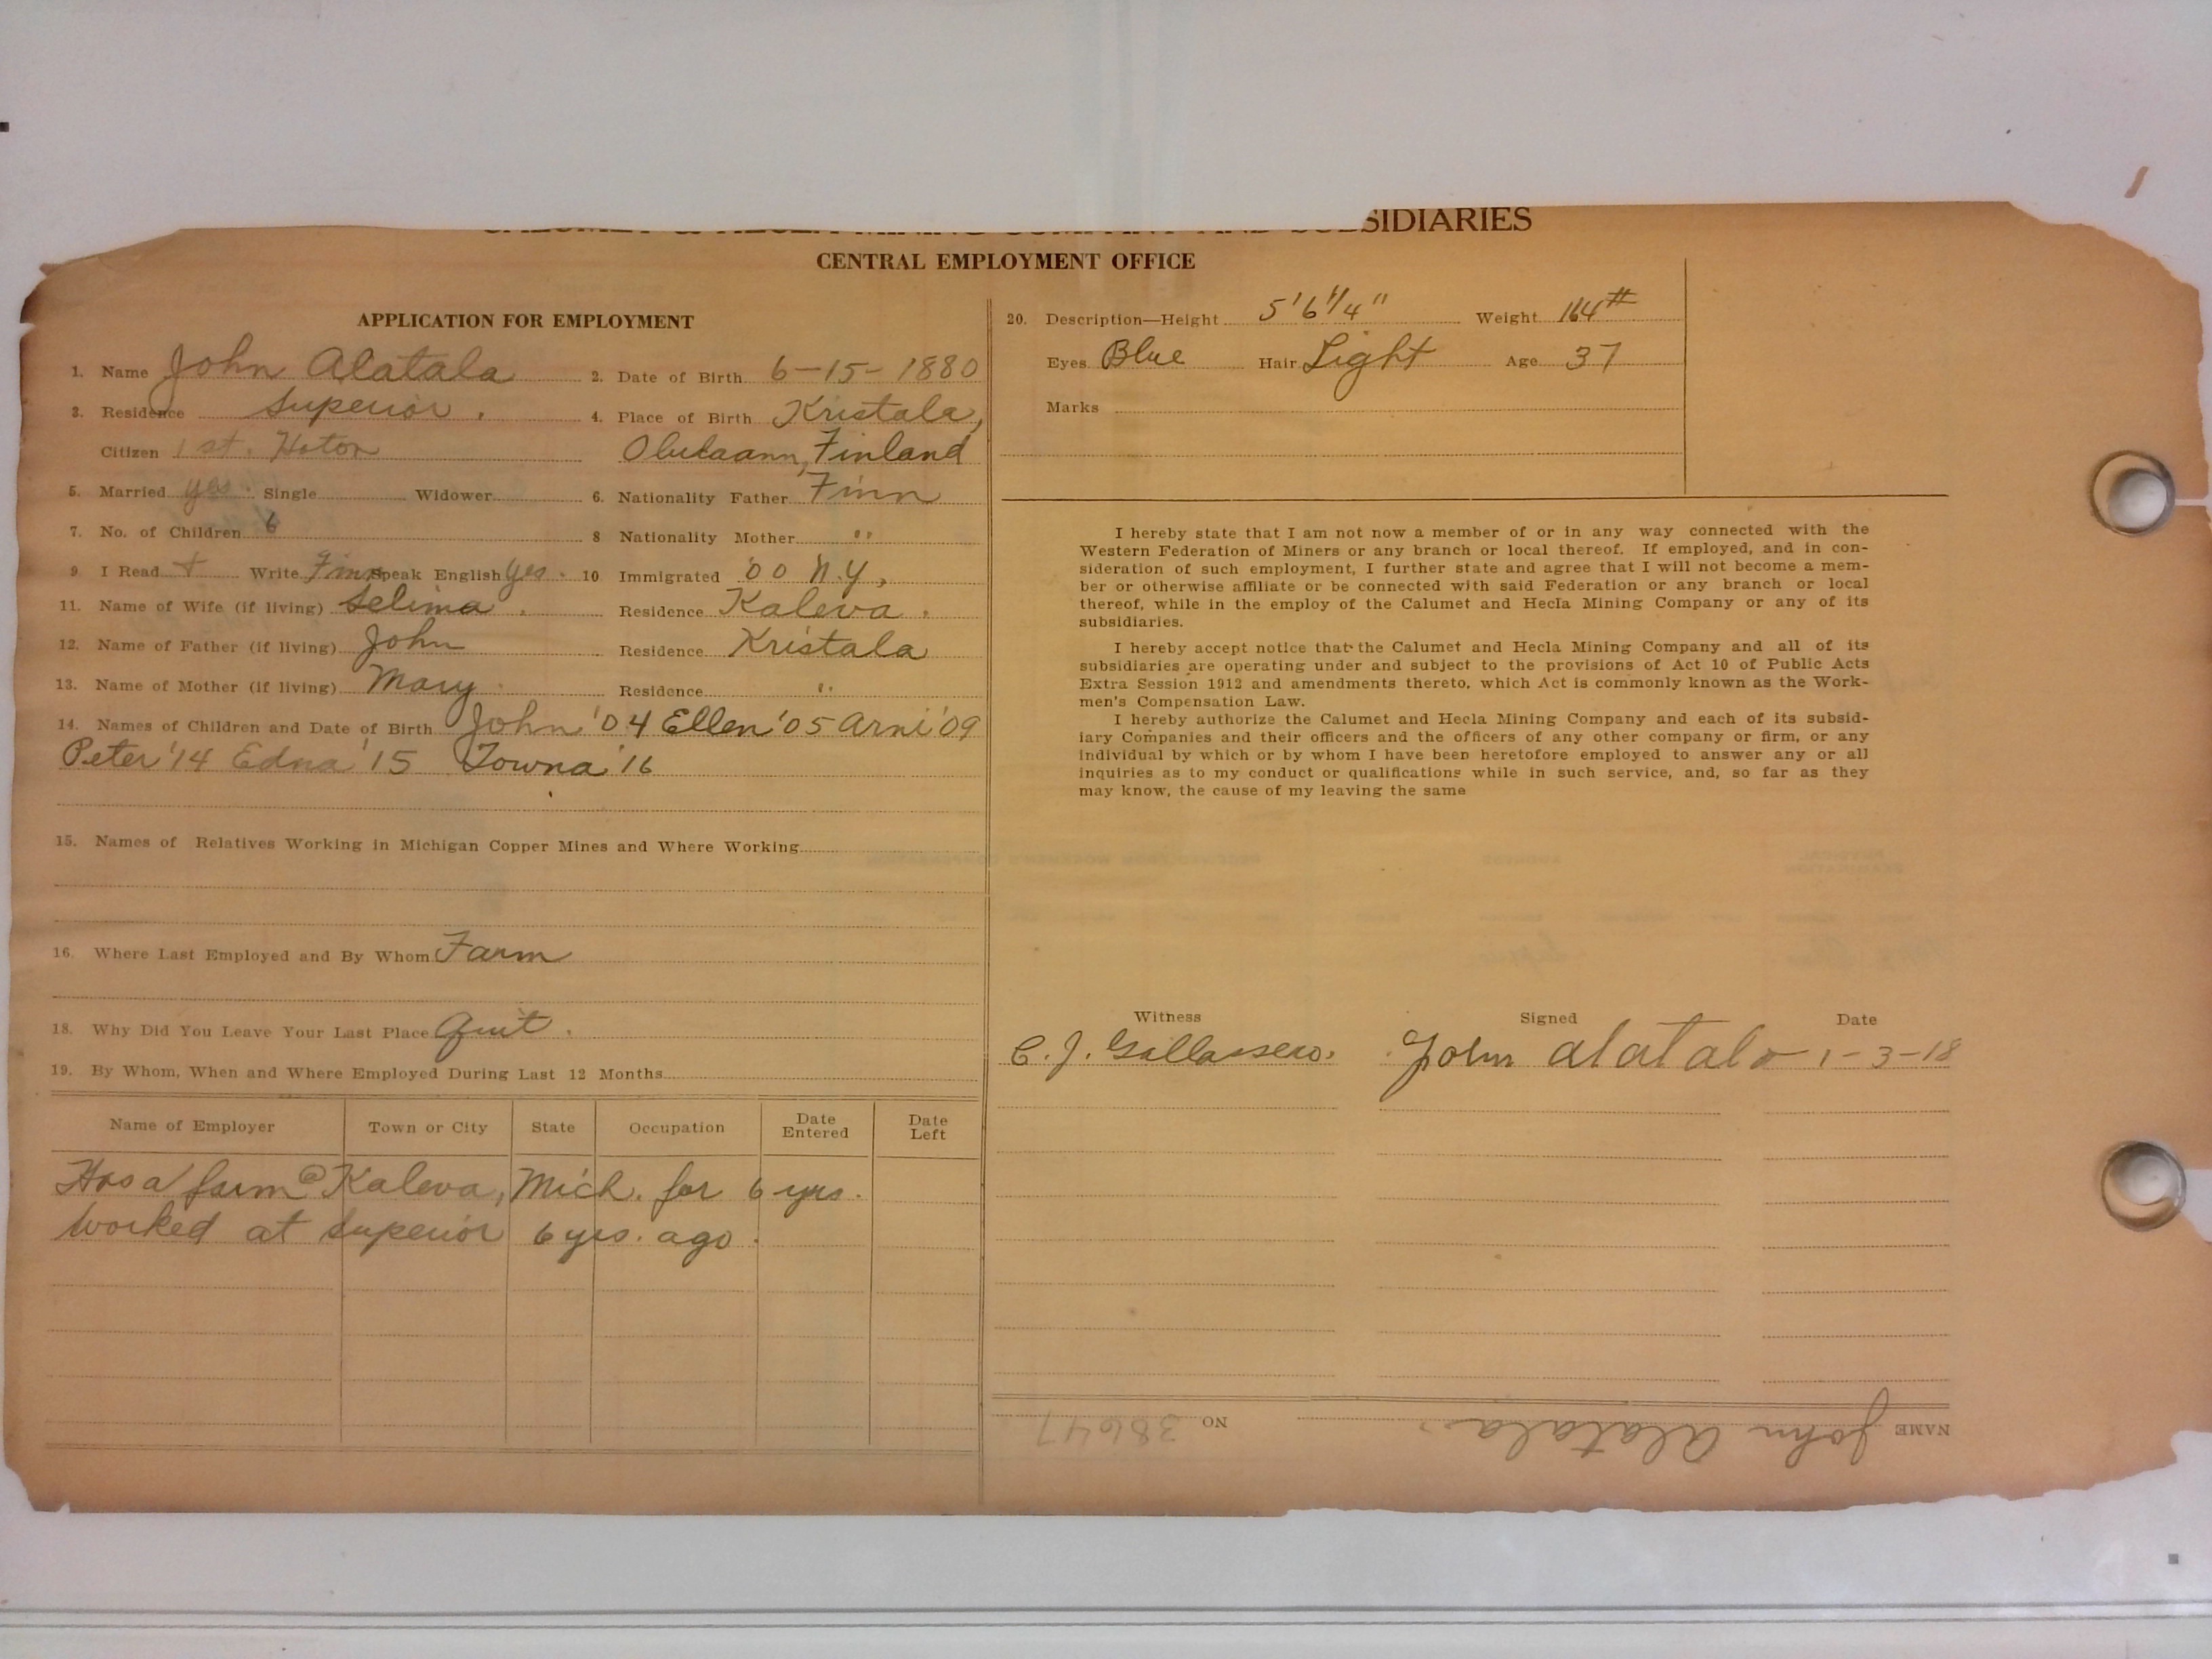 CALUMET & HECLA MINING COMPANY AND SUBSIDIARIES
CENTRAL EMPLOYMENT OFFICE
APPLICATION FOR EMPLOYMENT
1. Name John Alatala 2. Date of Birth 6-15-1880
3. Residence Superior. 4. Place of Birth Kristala,
Citizen 1st. Hoton Finland
5. Married yes. Single Widower 6. Nationality Father Finn
7. No. of Children 6 8 Nationality Mother "
9 I Read + Write Finn Speak English yes. 10 Immigrated '00 N.Y,
11. Name of Wife (if living) Selima. Residence Kaleva.
12. Name of Father (if living) John Residence Kristala
13. Name of Mother (if living) Mary Residence "
14. Names of Children and Date of Birth John '04 Ellen '05 Arni '09
Peter '14 Edna '15 Towna '16
15. Names of Relatives Working in Michigan Copper Mines and Where Working
16. Where Last Employed and By Whom Farm
18. Why Did You Leave Your Last Place Quit.
19. By Whom, When and Where Employed During Last 12 Months
Name of Employer Town or City State Occupation Date Entered Date Left
Has a farm @ Kaleva, Mich. for 6 yrs.
Worked at Superior 6 yrs. ago.
20. Description—Height 5'6 1/4" Weight 164#
Eyes Blue Hair Light Age 37
Marks
I hereby state that I am not now a member of or in any way connected with the
Western Federation of Miners or any branch or local thereof. If employed, and in con-
sideration of such employment, I further state and agree that I will not become a mem-
ber or otherwise affiliate or be connected with said Federation or any branch or local
thereof, while in the employ of the Calumet and Hecla Mining Company or any of its
subsidiaries.
I hereby accept notice that the Calumet and Hecla Mining Company and all of its
subsidiaries are operating under and subject to the provisions of Act 10 of Public Acts
Extra Session 1912 and amendments thereto, which Act is commonly known as the Work-
men's Compensation Law.
I hereby authorize the Calumet and Hecla Mining Company and each of its subsid-
iary Companies and their officers and the officers of any other company or firm, or any
individual by which or by whom I have been heretofore employed to answer any or all
inquiries as to my conduct or qualifications while in such service, and, so far as they
may know, the cause of my leaving the same
Witness Signed Date
C. J. John Alatalo 1-3-18
NAME John Alatala. NO 38647